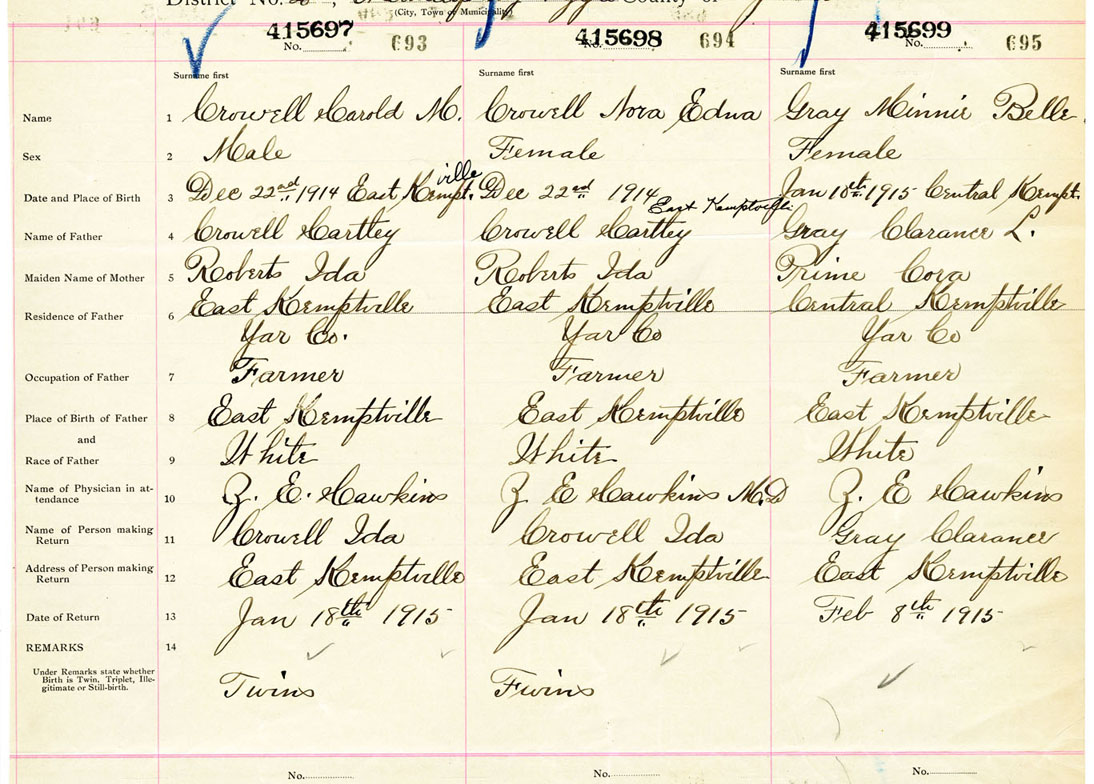 District No. County of
(City, Town or Municipality)
415697 415698 415699
No. 693 No. 694 No. 695
Surname first Surname first Surname first
Name 1 Crowell Harold M. Crowell Nova Edna Gray Minnie Belle
Sex 2 Male Female Female
Date and Place of Birth 3 Dec 22nd 1914 East Kemptville Dec 22nd 1914 East Kemptville Jan 18th 1915 Central Kempt.
Name of Father 4 Crowell Hartley Crowell Hartley Gray Clarance L.
Maiden Name of Mother 5 Roberts Ida Roberts Ida Prime Cora
Residence of Father 6 East Kemptville East Kemptville Central Kemptville
Yar Co. Yar Co Yar Co
Occupation of Father 7 Farmer Farmer Farmer
Place of Birth of Father 8 East Kemptville East Kemptville East Kemptville
and
Race of Father 9 White White White
Name of Physician in at-
tendance 10 Z. E. Hawkins Z E Hawkins M.D Z. E Hawkins
Name of Person making
Return 11 Crowell Ida Crowell Ida Gray Clarance
Address of Person making
Return 12 East Kemptville East Kemptville East Kemptville
Date of Return 13 Jan 18th 1915 Jan 18th 1915 Feb 8th 1915
REMARKS 14
Under Remarks state whether
Birth is Twin, Triplet, Ille-
gitimate or Still-birth.
Twins Twins
No. No. No.